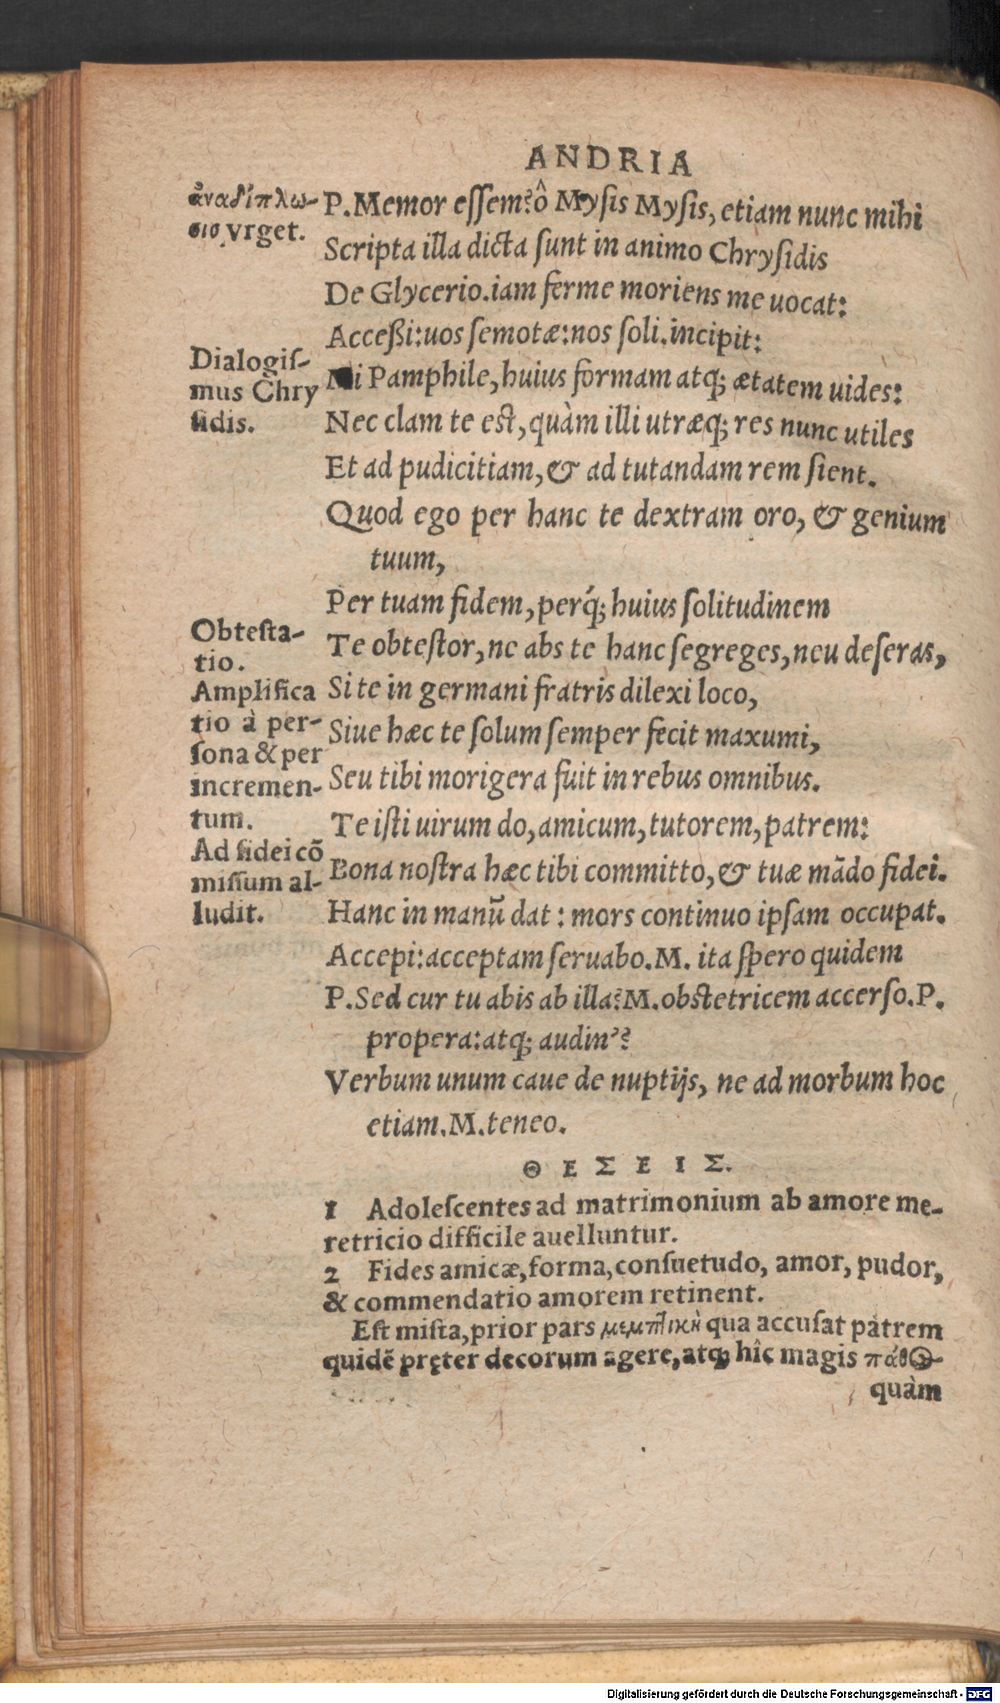 ANDRIA
ἀναδίπλω-
σις vrget.
P. Memor eſſem? ô Myſis Myſis, etiam nunc mihi
Scripta illa dicta ſunt in animo Chryſidis
De Glycerio. iam ferme moriens me uocat:
Acceßi: uos ſemotæ: nos ſoli. incipit:
Dialogiſ-
mus Chry
ſidis.
Mi Pamphile, huius formam atq; ætatem uides:
Nec clam te eſt, quàm illi utræq; res nunc utiles
Et ad pudicitiam, & ad tutandam rem ſient.
Quod ego per hanc te dextram oro, & genium
tuum,
Per tuam fidem, perq́; huius ſolitudinem
Obteſta-
tio.
Te obteſtor, ne abs te hanc ſegreges, neu deſeras,
Amplifica
tio à per-
ſona & per
incremen-
tum.
Si te in germani fratris dilexi loco,
Siue hæc te ſolum ſemper fecit maxumi,
Seu tibi morigera fuit in rebus omnibus.
Te iſti uirum do, amicum, tutorem, patrem:
Ad fidei cõ
miſſum al-
ludit.
Bona noſtra hæc tibi committo, & tuæ mãdo fidei.
Hanc in manũ dat: mors continuo ipſam occupat.
Accepi: acceptam ſeruabo. M. ita ſpero quidem
P. Sed cur tu abis ab illa? M. obſtetricem accerſo. P.
propera: atq; audin'?
Verbum unum caue de nuptijs, ne ad morbum hoc
etiam. M. teneo.
ΘΕΣΕΙΣ.
1 Adoleſcentes ad matrimonium ab amore me-
retricio difficile auelluntur.
2 Fides amicæ, forma, conſuetudo, amor, pudor,
& commendatio amorem retinent.
Eſt miſta, prior pars μεμπτικὴ qua accuſat patrem
quidē pręter decorum agere, atq; hîc magis πάθος
quàm
Digitalisierung gefördert durch die Deutsche Forschungsgemeinschaft - DFG